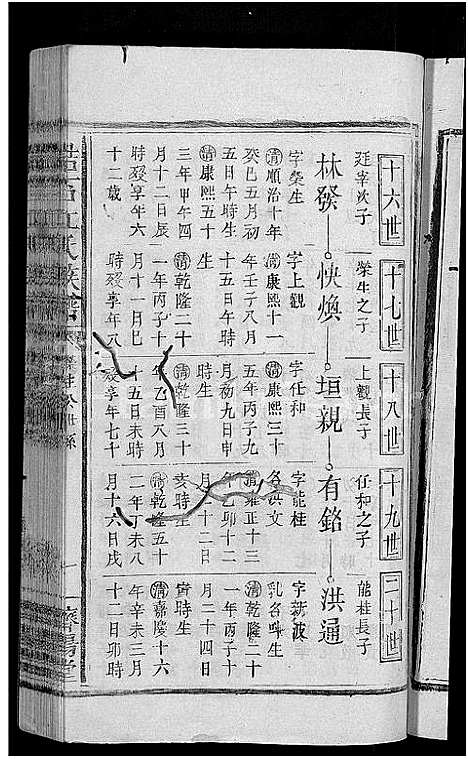 十六世
廷宰次子
林發
字榮生
清順治十年
癸巳五月初
五日午時生
清康熙五十
三年甲午四
月十二日辰
時歿享年六
十二歲
十七世
榮生之子
快煥
字上觀
清康熙十一
年壬子八月
十五日午時
生
清乾隆二十
一年丙子十
月十一月巳
時歿享年八
十八世
上觀長子
垣親
字任和
清康熙三十
五年丙子九
月初九日申
時生
清乾隆三十
年乙酉八月
十五日未時
歿享年七十
十九世
任和之子
有銘
字能桂
名洪文
清雍正十三
年乙卯十二
月二十二日
亥時生
清乾隆五十
二年丁未八
月十六日戌
二十世
能桂長子
洪通
字新波
乳名
清乾隆二十
一年丙子十
月二十四日
寅時生
清嘉慶十六
年辛未三月
十二日卯時
江氏族譜
濟陽堂